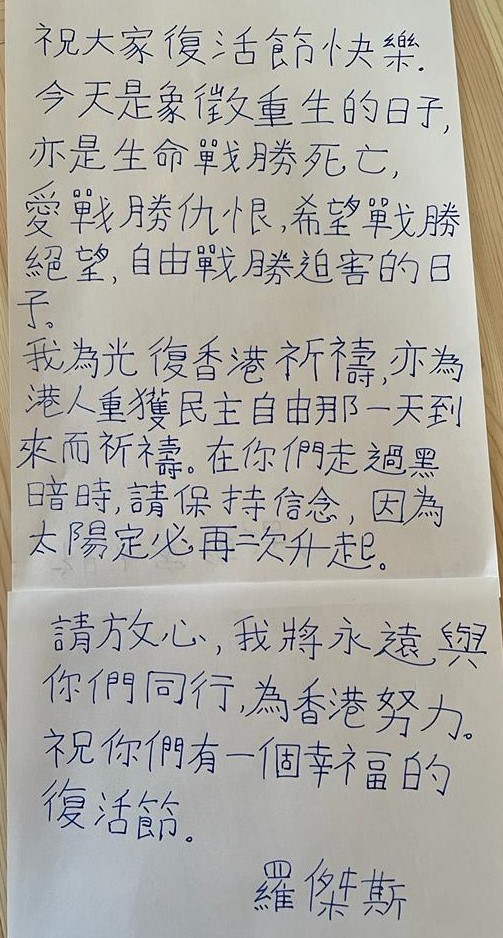 祝大家復活節快樂.
今天是象徵重生的日子,
亦是生命戰勝死亡,
愛戰勝仇恨,希望戰勝
絕望,自由戰勝迫害的日
子。
我為光復香港祈禱,亦為
港人重獲民主自由那一天到
來而祈禱。在你們走過黑
暗時,請保持信念,因為
太陽定必再次升起。
請放心,我將永遠與
你們同行,為香港努力。
祝你們有一個幸福的
復活節。
羅傑斯